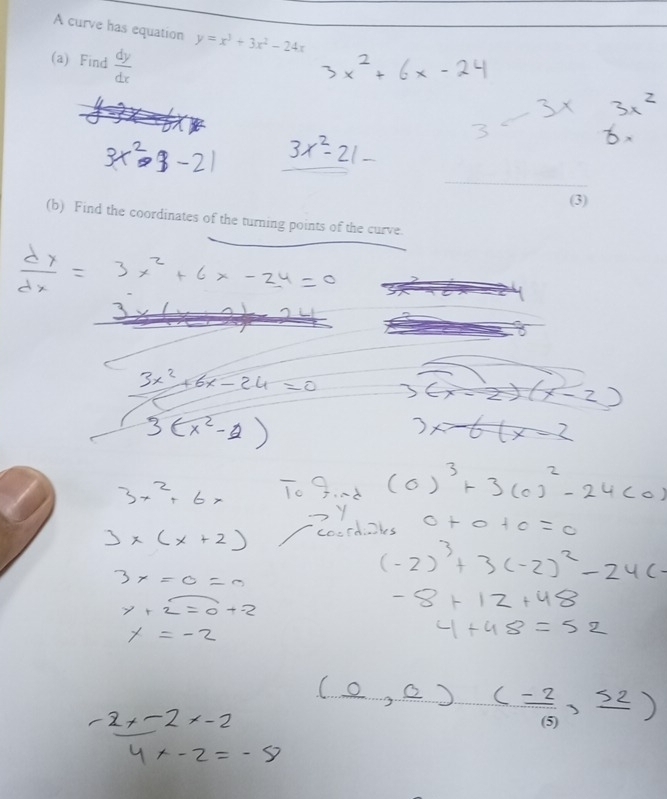 A curve has equation y = x³ + 3x² − 24x
(a) Find dy/dx
3x² + 6x − 24
3 − 3x 3x²
6x
3x² − 21
3x² − 21 −
(3)
(b) Find the coordinates of the turning points of the curve.
dy/dx = 3x² + 6x − 24 = 0
3x² + 6x − 24 = 0
3(x − 2)(x − 2)
3(x² − 2)
3x − 6(x − 2
3x² + 6x
3x(x + 2)
3x = 0 = 0
x + 2 = 0 + -2
x = −2
To find
y
coordinates
(0)³ + 3(0)² − 24(0)
0 + 0 + 0 = 0
(−2)³ + 3(−2)² − 24(−
−8 + 12 + 48
4 + 48 = 52
(0, 0) (−2, 52)
(5)
−2 × −2 × −2
4 × −2 = −8